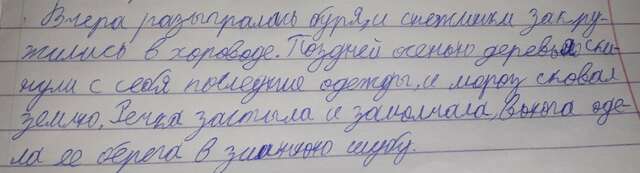 Вчера разыгралась буря, и снежинки закру-
жились в хороводе. Поздней осенью деревья ски-
нули с себя последние одежды, и мороз сковал
землю. Речка застыла и замолчала, вьюга оде-
ла ее берега в зимнюю шубу.